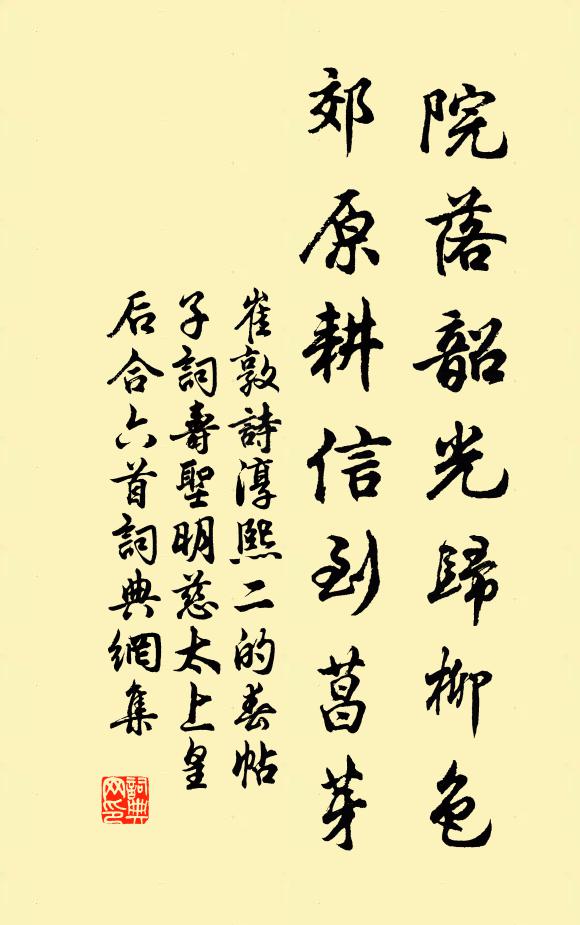 院落韶光歸柳色
郊原耕信到菖芽
崔敦詩淳熙二的春帖
子詞壽聖明慈太上皇
后合六首詞典網集
詞典
网印